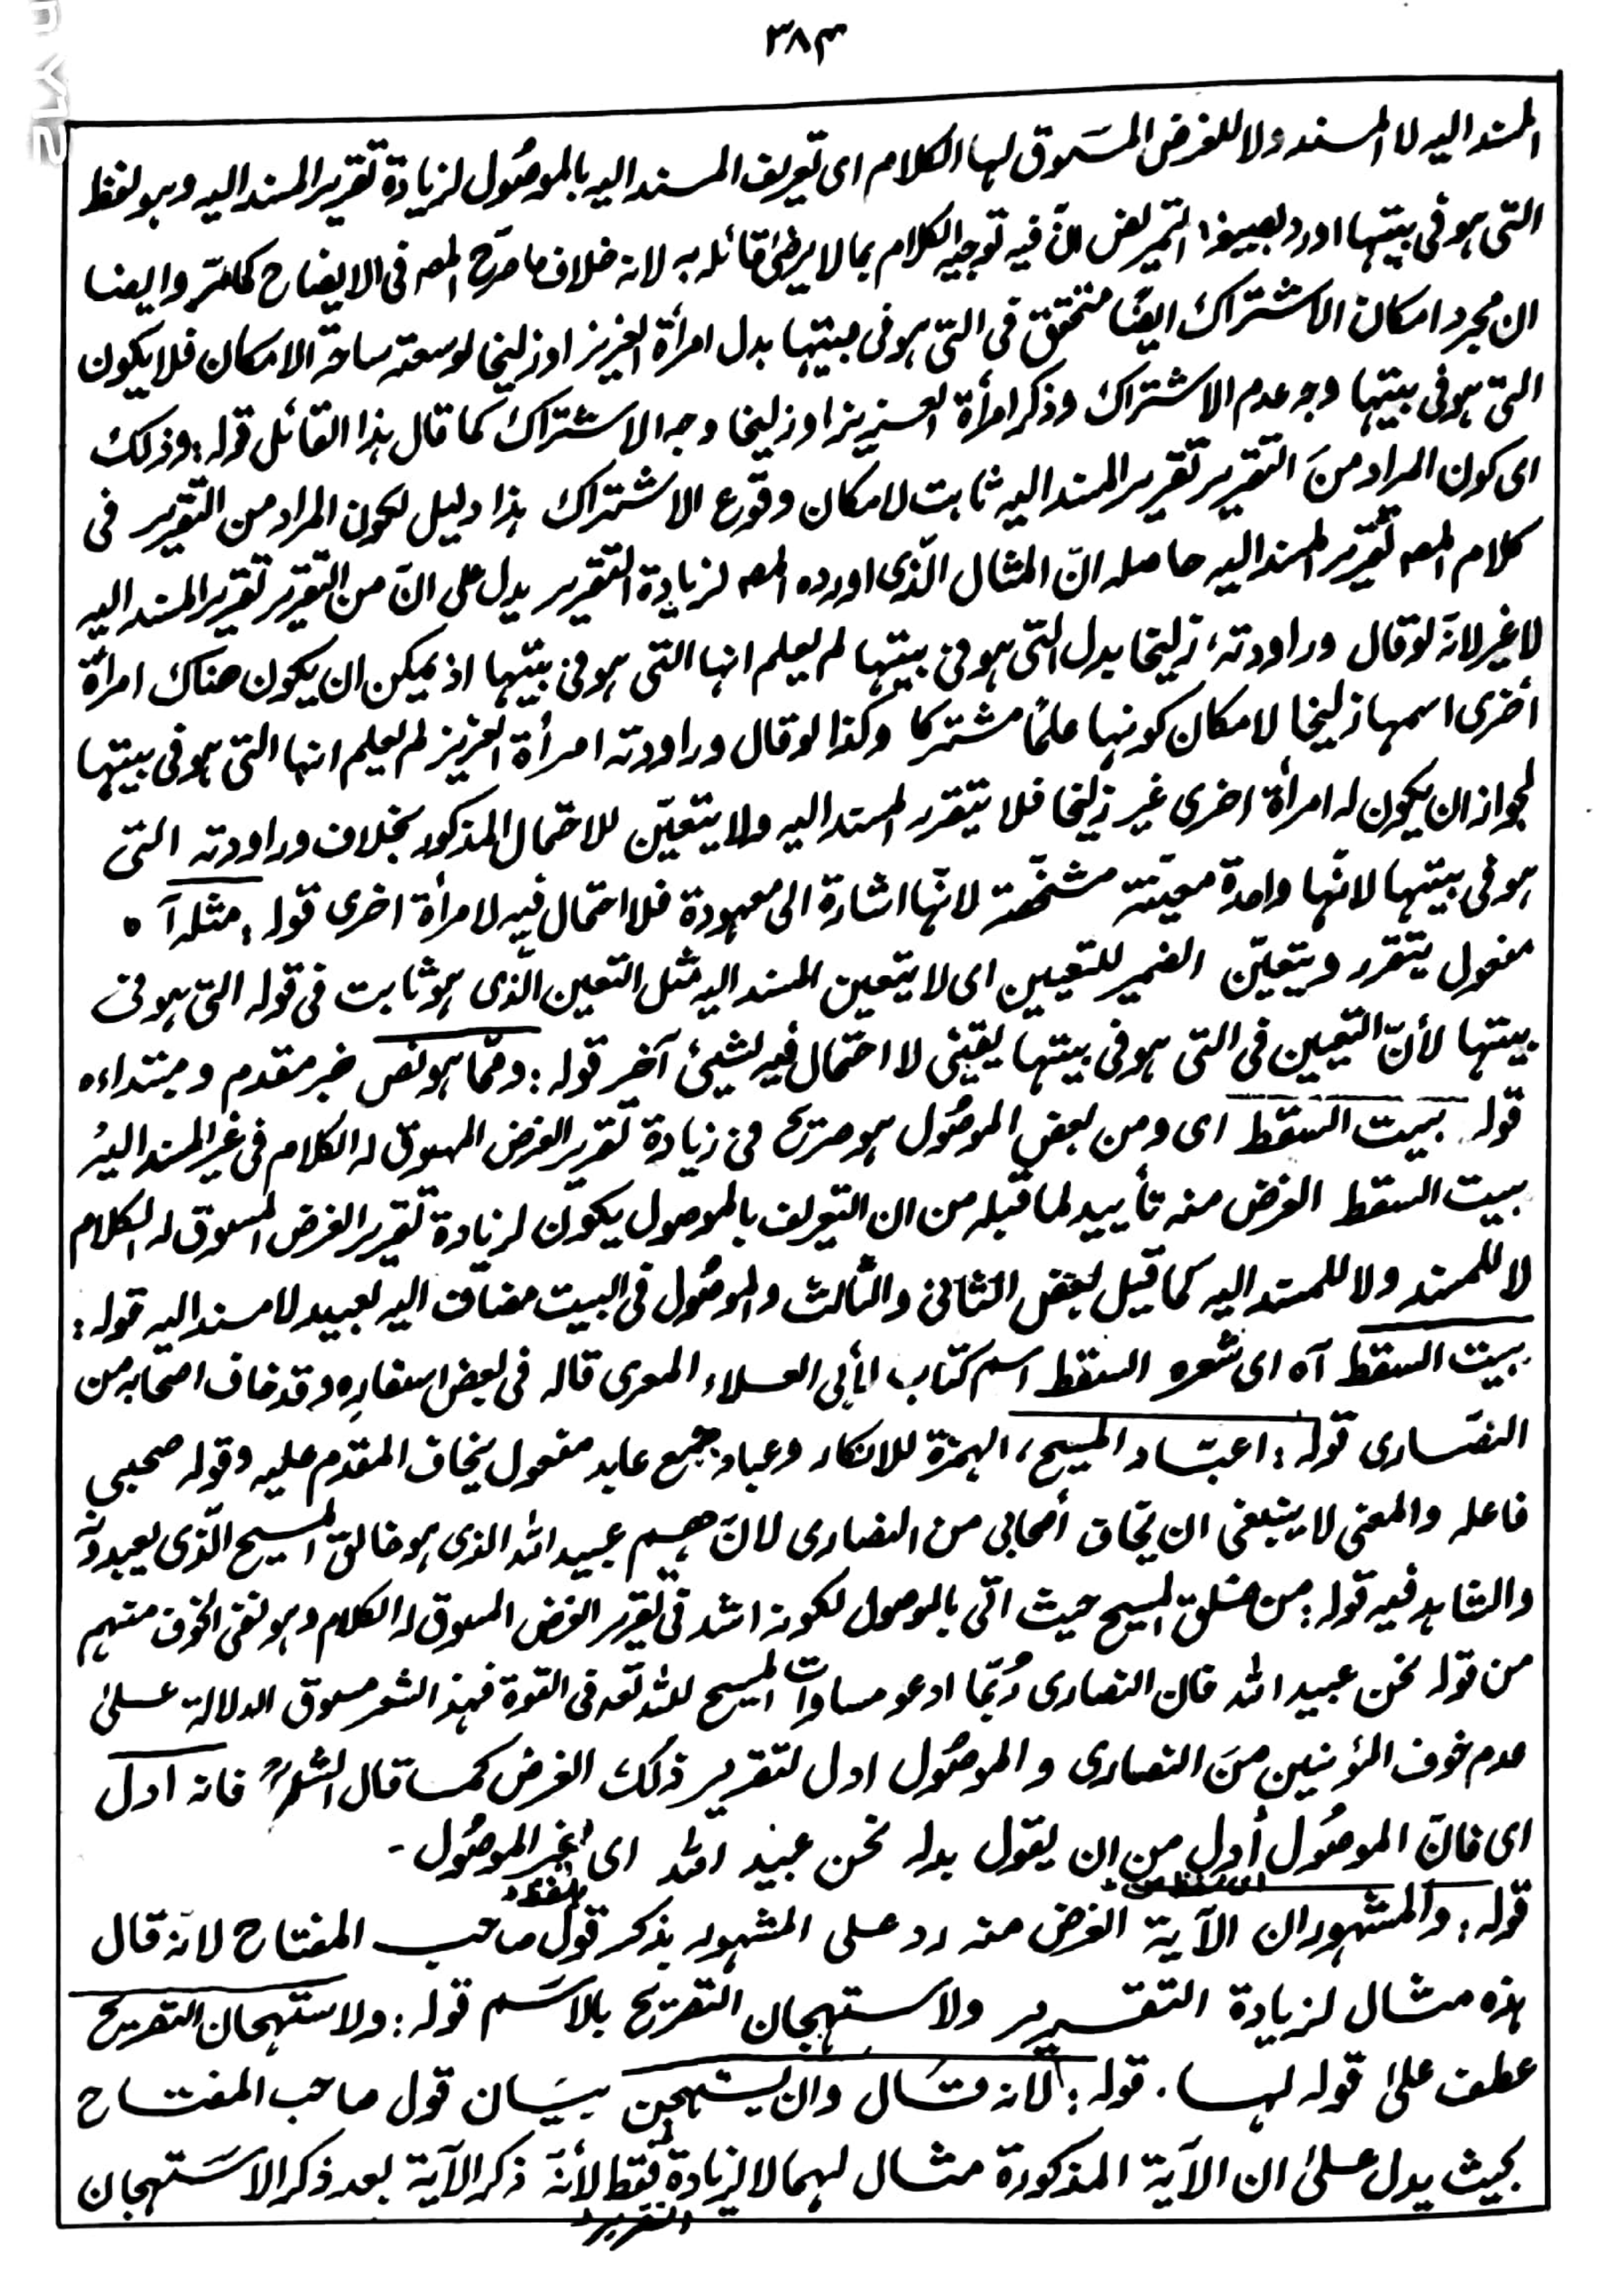 ٣٨٣
المسند اليه لا المسند ولا للغرض المسَوق لها الكلام اى تعريف المسند اليه بالموصُول لزيادة تقرير المسند اليه وهو لفظ
التى هو فى بيتها اورد بصيغة التمريض لانّ فيه توجيه الكلام بما لا يرضىٰ قائله به لانه خلاف ما صرّح المصه فى الايضاح كما مرّ وايضا
ان مجرد امكان الاشتراك ايضًا متحقق فى التى هو فى بيتها بدل امرأة العزيز او زليخا لوسعته ساحة الامكان فلا يكون
التى هو فى بيتها وجه عدم الاشتراك وذكر امرأة العزيز او زليخا وجه الاشتراك كما قال هذا القائل قوله: وذلك
اى كون المراد منَ التقرير تقرير المسند اليه ثابت لامكان وقوع الاشتراك هذا دليل لكون المراد من التقرير فى
كلام المصه تقرير المسند اليه حاصله انّ المثال الّذى اورده المصه لزيادة التقرير يدل على انّ من التقرير تقرير المسند اليه
لا غير لانّه لو قال وراودته زليخا بدل التى هو فى بيتها لم يعلم انها التى هو فى بيتها اذ يمكن ان يكون هناك امرأة
أخرى اسمها زليخا لامكان كونها علمًا مشتركا وكذا لو قال وراودته امرأة العزيز لم يعلم انها التى هو فى بيتها
لجواز ان يكون له امرأة اخرى غير زليخا فلا يتقرر المسند اليه ولا يتعيّن للاحتمال المذكور بخلاف وراودته التى
هو فى بيتها لانّها واحدة معيّنة مشخّصة لانّها اشارة الى معهودة فلا احتمال فيه لامرأة اخرى قوله: مثله آه
مفعول يتقرر ويتعيّن الضمير للتعيين اى لا يتعين المسند اليه مثل التعين الّذى هو ثابت فى قوله التى هو فى
بيتها لأنّ التعيين فى التى هو فى بيتها يقينى لا احتمال فيه لشيئ آخر قوله: وممّا هو نص خبر مقدم ومبتداءه
قوله بيت السقط اى ومن بعض الموصُول هو صريح فى زيادة تقرير الغرض المسوق له الكلام فى غير المسند اليه
بيت السقط الغرض منه تأييد لما قبله من ان التعريف بالموصول يكون لزيادة تقرير الغرض المسوق له الكلام
لا للمسند ولا للمسند اليه كما قيل لبعض الثانى والثالث والموصُول فى البيت مضاف اليه لعبيد لا مسند اليه قوله:
بيت السقط آه اى شعره السقط اسم كتاب لأبى العلاء المعرى قاله فى بعض اسفاره وقد خاف اصحابه من
النصَارى قوله: اعبّاد المسيح، الهمزة للانكار وعباد جمع عابد مفعول يخاف المقدم عليه وقوله صحبى
فاعله والمعنى لا ينبغى ان يخاف أصحابى من النصارى لانّ هم عبيد الله الذى هو خالق المسيح الّذى يعبدونه
والشاهد فيه قوله: من خلق المسيح حيث اتى بالموصول لكونه اشد فى تقرير الغرض المسوق له الكلام وهو نفى الخوف منهم
من قوله نحن عبيد الله فان النصارى رُبّما ادعو مساوات المسيح لله تعه فى القوة فهذا الشعر مسوق الدلالة علىٰ
عدم خوف المؤمنين منَ النصارى والموصُول ادل لتقرير ذلك الغرض كما قال الشارح فانه ادل
اى فانّ الموصُول أدل من ان يقول بدله نحن عبيد الله اى غير الموصُول -
قوله: والمشهور ان الآية الغرض منه رد على المشهور بذكر قول صاحب المفتاح لانّه قال
هذه مثال لزيادة التقرير ولاستهجان التصريح بالاسَم قوله: ولاستهجان التصريح
عطف علىٰ قوله لها. قوله: لانه قَال وان يستهجن بيَان قول صاحب المفتاح
بحيث يدل علىٰ ان الآية المذكورة مثال لهما لا لزيادة التقرير فقط لأنّه ذكر الآية بعد ذكر الاسَتهجان